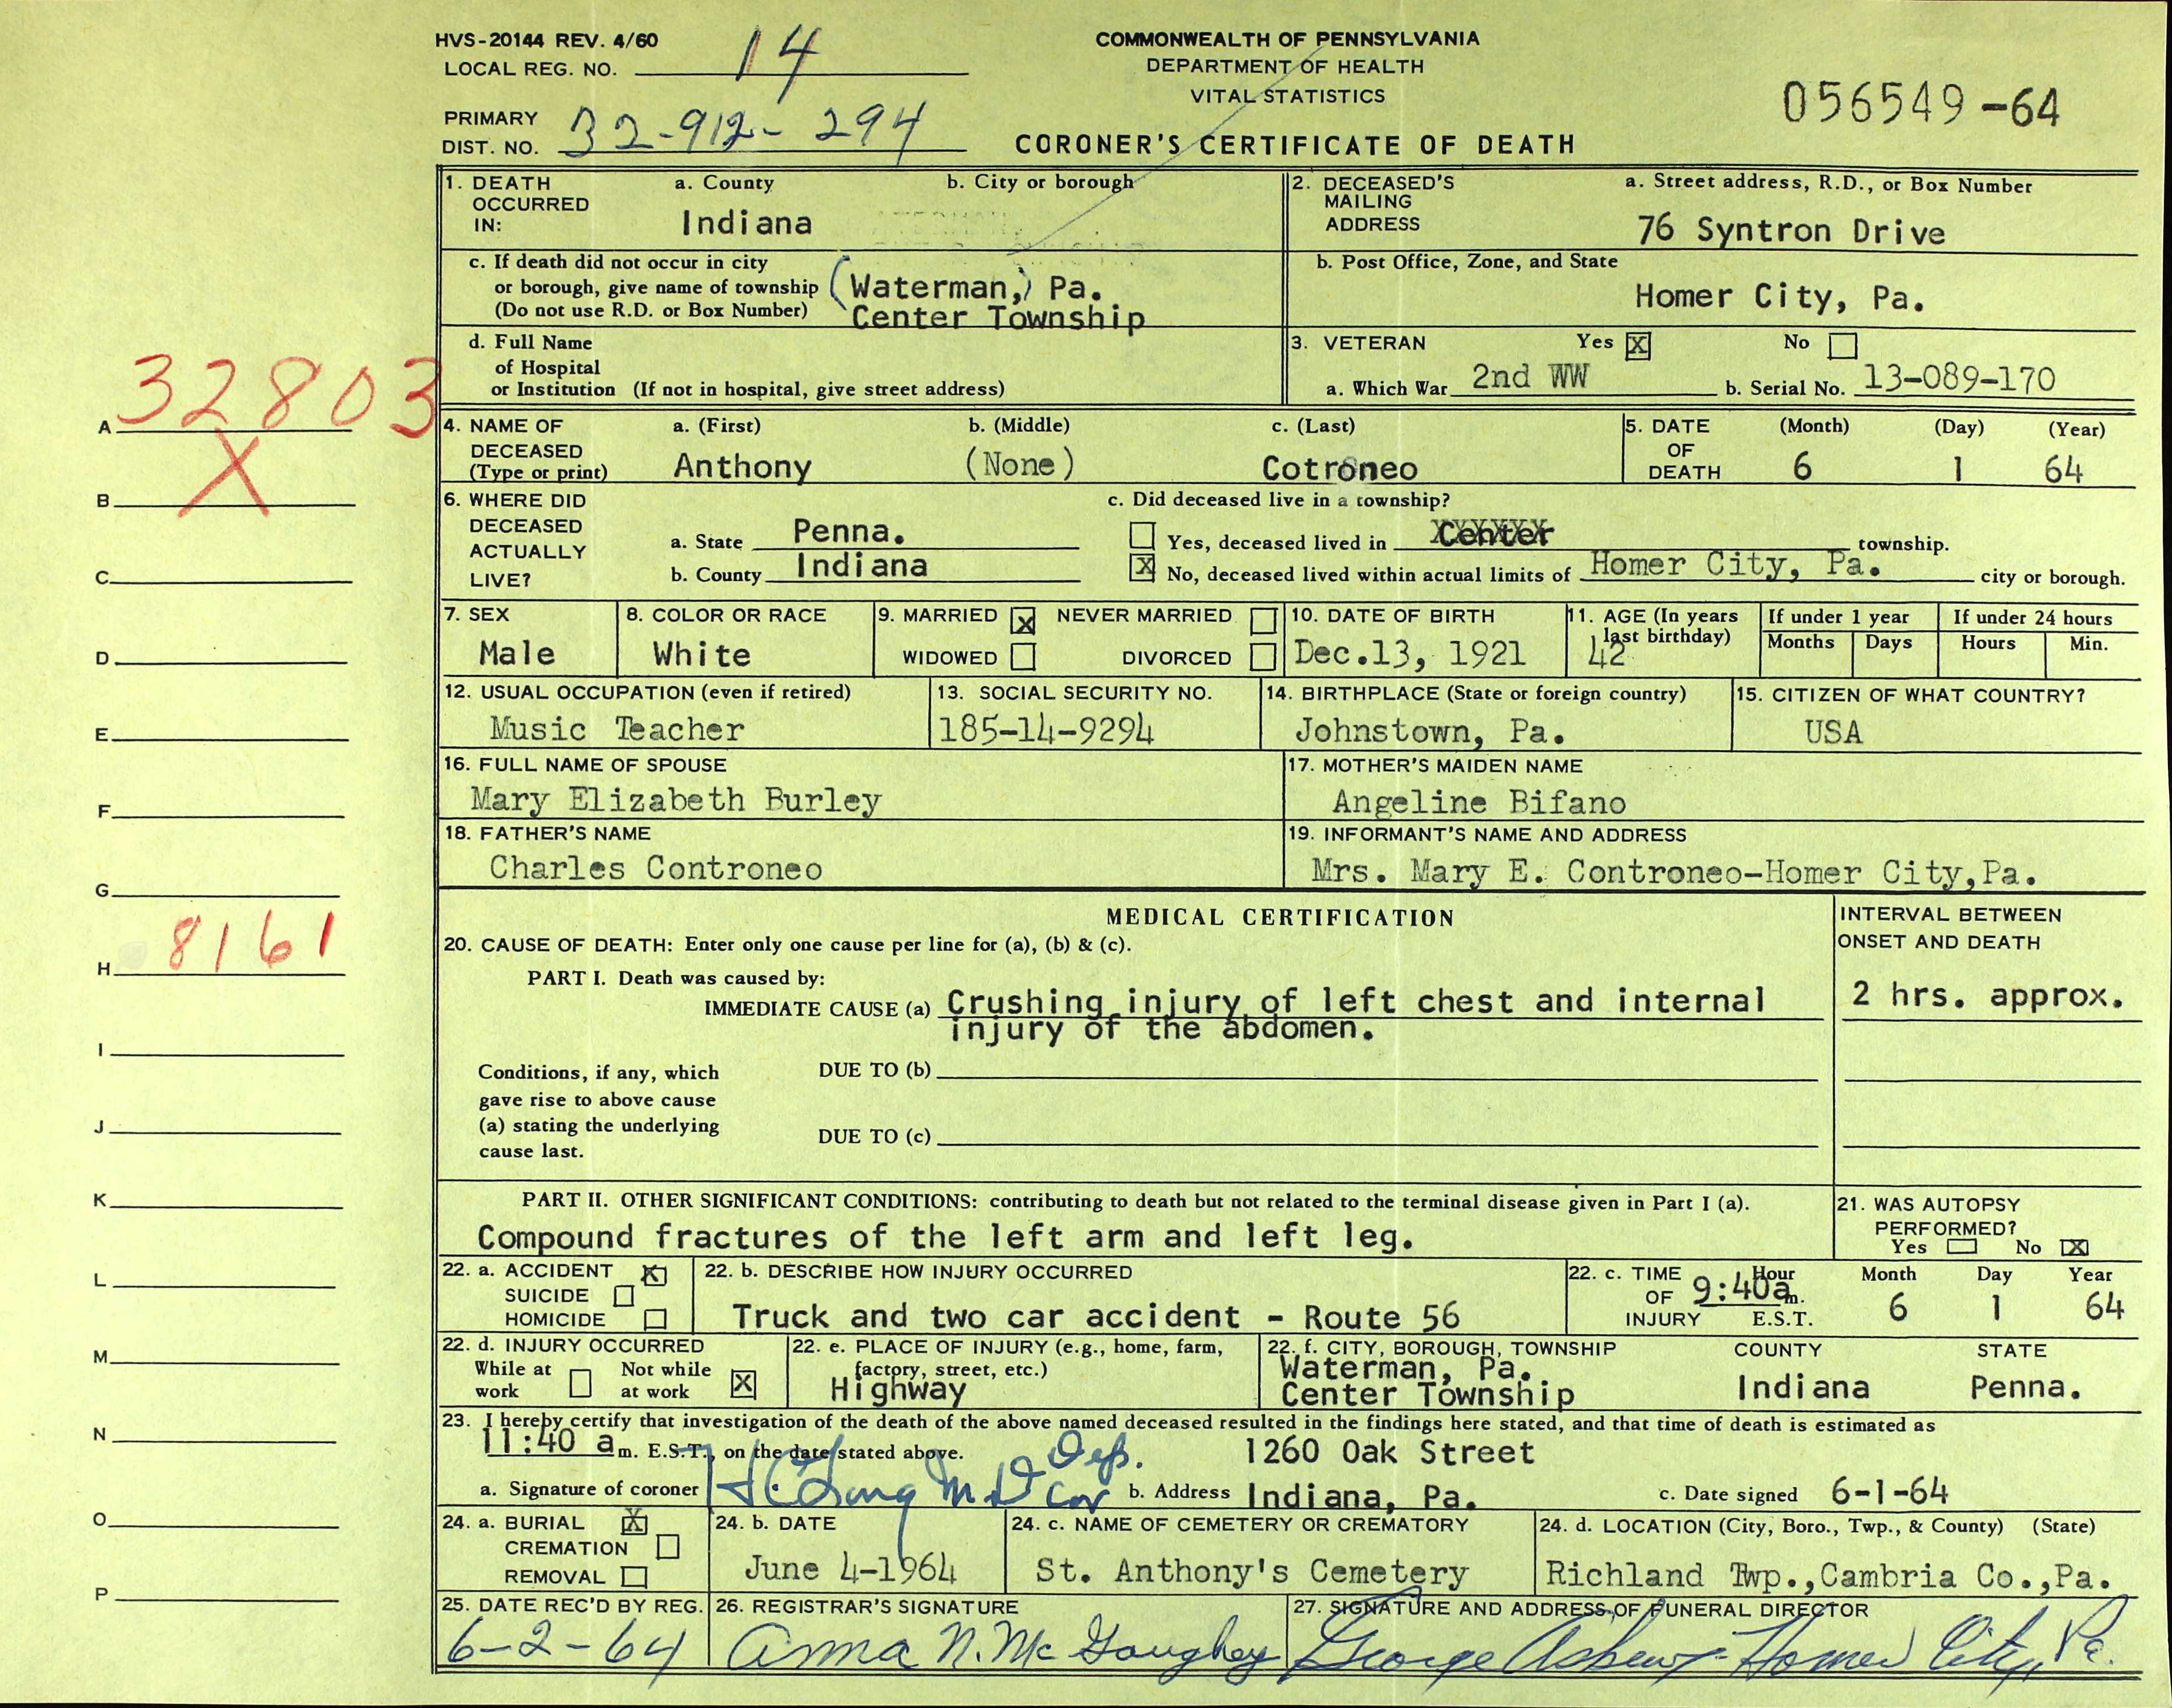 HVS-20144 REV. 4/60
LOCAL REG. NO. 14
PRIMARY DIST. NO. 32-912-294
COMMONWEALTH OF PENNSYLVANIA
DEPARTMENT OF HEALTH
VITAL STATISTICS
CORONER'S CERTIFICATE OF DEATH
056549-64
1. DEATH OCCURRED IN: a. County b. City or borough
Indiana
2. DECEASED'S MAILING ADDRESS a. Street address, R.D., or Box Number
76 Syntron Drive
c. If death did not occur in city
or borough, give name of township (Waterman,) Pa.
(Do not use R.D. or Box Number) Center Township
b. Post Office, Zone, and State
Homer City, Pa.
d. Full Name
of Hospital
or Institution (If not in hospital, give street address)
3. VETERAN Yes X No
a. Which War 2nd WW b. Serial No. 13-089-170
32803
A
X
B
C
D
E
F
G
8161
H
I
J
K
L
M
N
O
P
4. NAME OF DECEASED (Type or print) a. (First) b. (Middle) c. (Last)
Anthony (None) Cotroneo
5. DATE OF DEATH (Month) (Day) (Year)
6 1 64
6. WHERE DID DECEASED ACTUALLY LIVE?
a. State Penna.
b. County Indiana
c. Did deceased live in a township?
Yes, deceased lived in Center township.
X No, deceased lived within actual limits of Homer City, Pa. city or borough.
7. SEX
Male
8. COLOR OR RACE
White
9. MARRIED X NEVER MARRIED
WIDOWED DIVORCED
10. DATE OF BIRTH
Dec.13, 1921
11. AGE (In years last birthday)
42
If under 1 year
Months Days
If under 24 hours
Hours Min.
12. USUAL OCCUPATION (even if retired)
Music Teacher
13. SOCIAL SECURITY NO.
185-14-9294
14. BIRTHPLACE (State or foreign country)
Johnstown, Pa.
15. CITIZEN OF WHAT COUNTRY?
USA
16. FULL NAME OF SPOUSE
Mary Elizabeth Burley
17. MOTHER'S MAIDEN NAME
Angeline Bifano
18. FATHER'S NAME
Charles Controneo
19. INFORMANT'S NAME AND ADDRESS
Mrs. Mary E. Controneo-Homer City,Pa.
MEDICAL CERTIFICATION
INTERVAL BETWEEN
ONSET AND DEATH
20. CAUSE OF DEATH: Enter only one cause per line for (a), (b) & (c).
PART I. Death was caused by:
IMMEDIATE CAUSE (a) Crushing injury of left chest and internal
injury of the abdomen.
2 hrs. approx.
Conditions, if any, which
gave rise to above cause
(a) stating the underlying
cause last.
DUE TO (b)
DUE TO (c)
PART II. OTHER SIGNIFICANT CONDITIONS: contributing to death but not related to the terminal disease given in Part I (a).
Compound fractures of the left arm and left leg.
21. WAS AUTOPSY
PERFORMED?
Yes No X
22. a. ACCIDENT X
SUICIDE
HOMICIDE
22. b. DESCRIBE HOW INJURY OCCURRED
Truck and two car accident - Route 56
22. c. TIME OF INJURY Hour Month Day Year
9:40a m. E.S.T. 6 1 64
22. d. INJURY OCCURRED
While at work Not while at work X
22. e. PLACE OF INJURY (e.g., home, farm,
factory, street, etc.)
Highway
22. f. CITY, BOROUGH, TOWNSHIP COUNTY STATE
Waterman, Pa.
Center Township Indiana Penna.
23. I hereby certify that investigation of the death of the above named deceased resulted in the findings here stated, and that time of death is estimated as
11:40 a m. E.S.T., on the date stated above.
a. Signature of coroner M.D. Dep. Cor
b. Address 1260 Oak Street
Indiana, Pa.
c. Date signed 6-1-64
24. a. BURIAL X
CREMATION
REMOVAL
24. b. DATE
June 4-1964
24. c. NAME OF CEMETERY OR CREMATORY
St. Anthony's Cemetery
24. d. LOCATION (City, Boro., Twp., & County) (State)
Richland Twp.,Cambria Co.,Pa.
25. DATE REC'D BY REG.
6-2-64
26. REGISTRAR'S SIGNATURE
Anna N. McGaughey
27. SIGNATURE AND ADDRESS OF FUNERAL DIRECTOR
George Homer City, Pa.